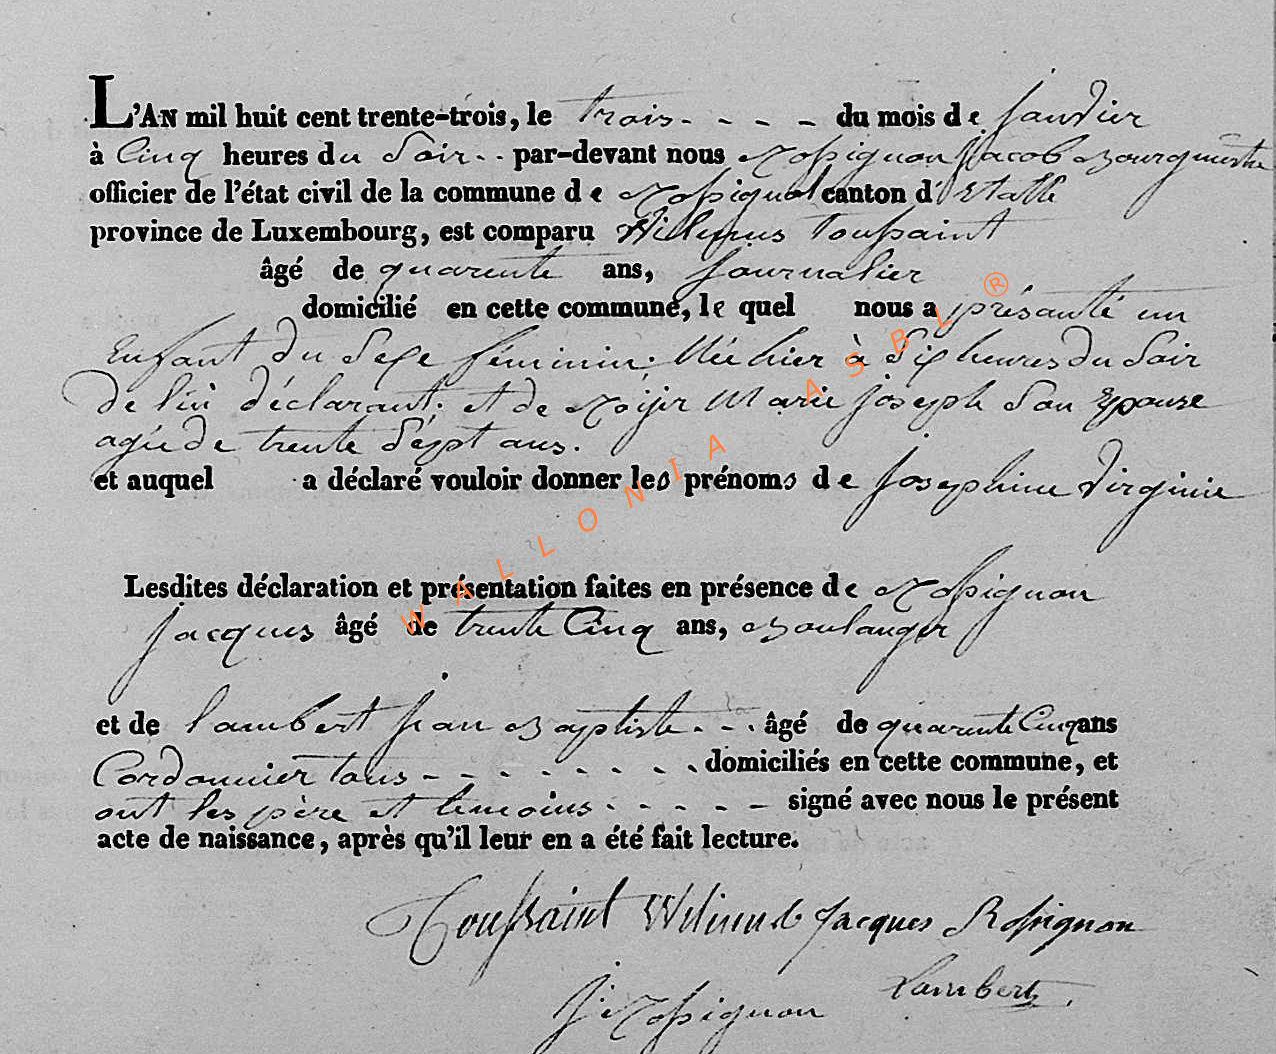 L'AN mil huit cent trente-trois, le trois - - - - du mois de Janvier
à Cinq heures du Soir - - par-devant nous Rossignon Jacob Bourgmestre
officier de l'état civil de la commune de Rossignol canton d'Etalle
province de Luxembourg, est comparu Toussaint
âgé de quarente ans, Journalier
domicilié en cette commune, le quel nous a présanté un
Enfant du Sexe féminin. Née hier à Six heures du Soir
De lui déclarant. et de Marie Joseph Son Epouse
agée de trente Sept ans.
et auquel a déclaré vouloir donner les prénoms de Josephine Virginie
Lesdites déclaration et présentation faites en présence de Rossignon
Jacques âgé de trente Cinq ans, Boulanger
et de Lambert Jean Baptiste - - . âgé de quarente Cinq ans
Cordonnier tous - - - - - - - - domiciliés en cette commune, et
ont les père et temoins - - - - - signé avec nous le présent
acte de naissance, après qu'il leur en a été fait lecture.
Toussaint Jacques Rossignon
Lambert
J. Rossignon
WALLONIA ASBL ®